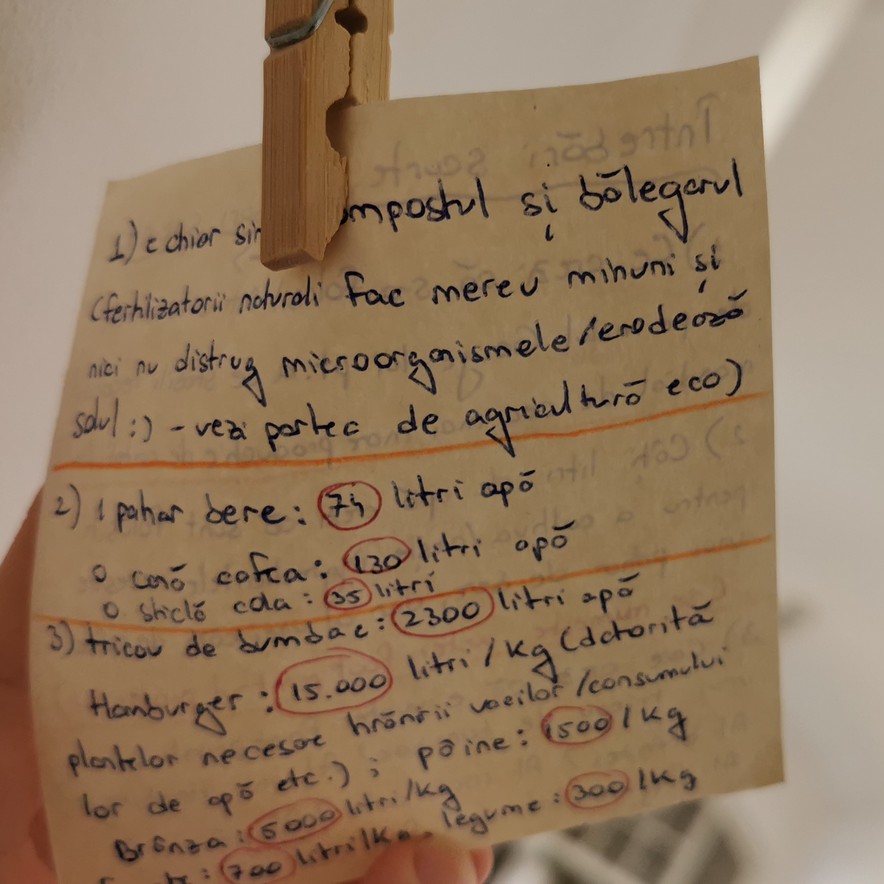 1) e chiar compostul și bălegarul
(fertilizatorii naturali fac mereu minuni și
nici nu distrug microorganismele/erodează
solul :) - vezi partea de agricultură eco)
2) 1 pahar bere: 74 litri apă
o cană cafea: 130 litri apă
o sticlă cola: 35 litri
3) tricou de bumbac: 2300 litri apă
Hamburger: 15.000 litri/kg (datorită
plantelor necesare hrănirii vacilor/consumului
lor de apă etc.); pâine: 1500/kg
Brânza: 5000 litri/kg legume: 300/kg
700 litri/kg